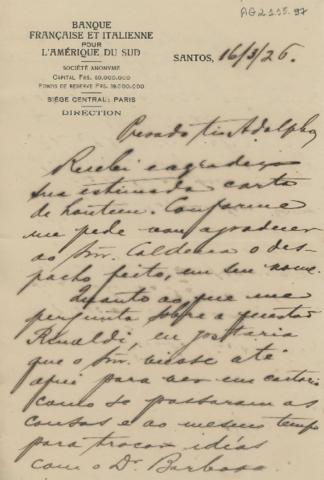 AG2155.97
BANQUE
FRANÇAISE ET ITALIENNE
POUR
L'AMÉRIQUE DU SUD
SOCIÉTÉ ANONYME
CAPITAL FRS. 50.000.000
FONDS DE RESERVE FRS. 39.000.000
SIÈGE CENTRAL: PARIS
DIRECTION
SANTOS, 16/3/26.
Presado tio Adolpho
Recebi e agradeço
sua estimada carta
de hontem. Conforme
me pede vou agradecer
ao Snr. Caldeira o des-
pacho feito, em seu nome.
Quanto ao que me
pergunta sobre a questão
Rinaldi, eu gostaria
que o Snr. viesse até
aqui para ver em cartorio
como se passaram as
cousas e ao mesmo tempo
para trocar idéias
com o Dr. Barbosa.